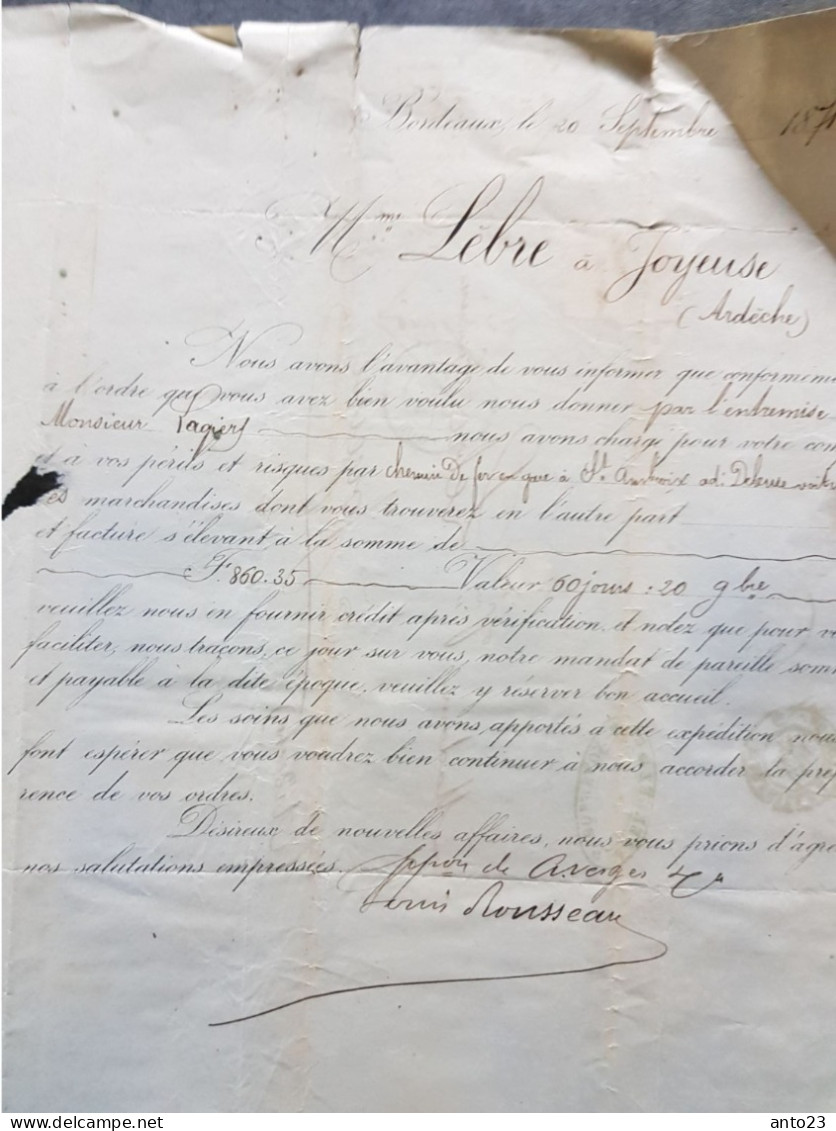 Bordeaux, le 20 Septembre 187
Mme Lèbre à Joyeuse
(Ardèche)
Nous avons l'avantage de vous informer que conformeme
à l'ordre que vous avez bien voulu nous donner par l'entremise
Monsieur Lagier nous avons chargé pour votre com
et à vos périls et risques par chemin de fer en gare à St Ambroix
es marchandises dont vous trouverez en l'autre part
et facture s'élevant à la somme de
F. 860.35 Valeur 60 jours : 20 9bre
veuillez nous en fournir crédit après vérification, et notez que pour v
faciliter, nous traçons, ce jour sur vous, notre mandat de pareille som
et payable à la dite époque, veuillez y réserver bon accueil.
Les soins que nous avons apportés à cette expédition nous
font espérer que vous voudrez bien continuer à nous accorder la préf
rence de vos ordres.
Désireux de nouvelles affaires, nous vous prions d'agré
nos salutations empressées. Ppon de A. Verges
Louis Rousseau
Delcampe.net
anto23